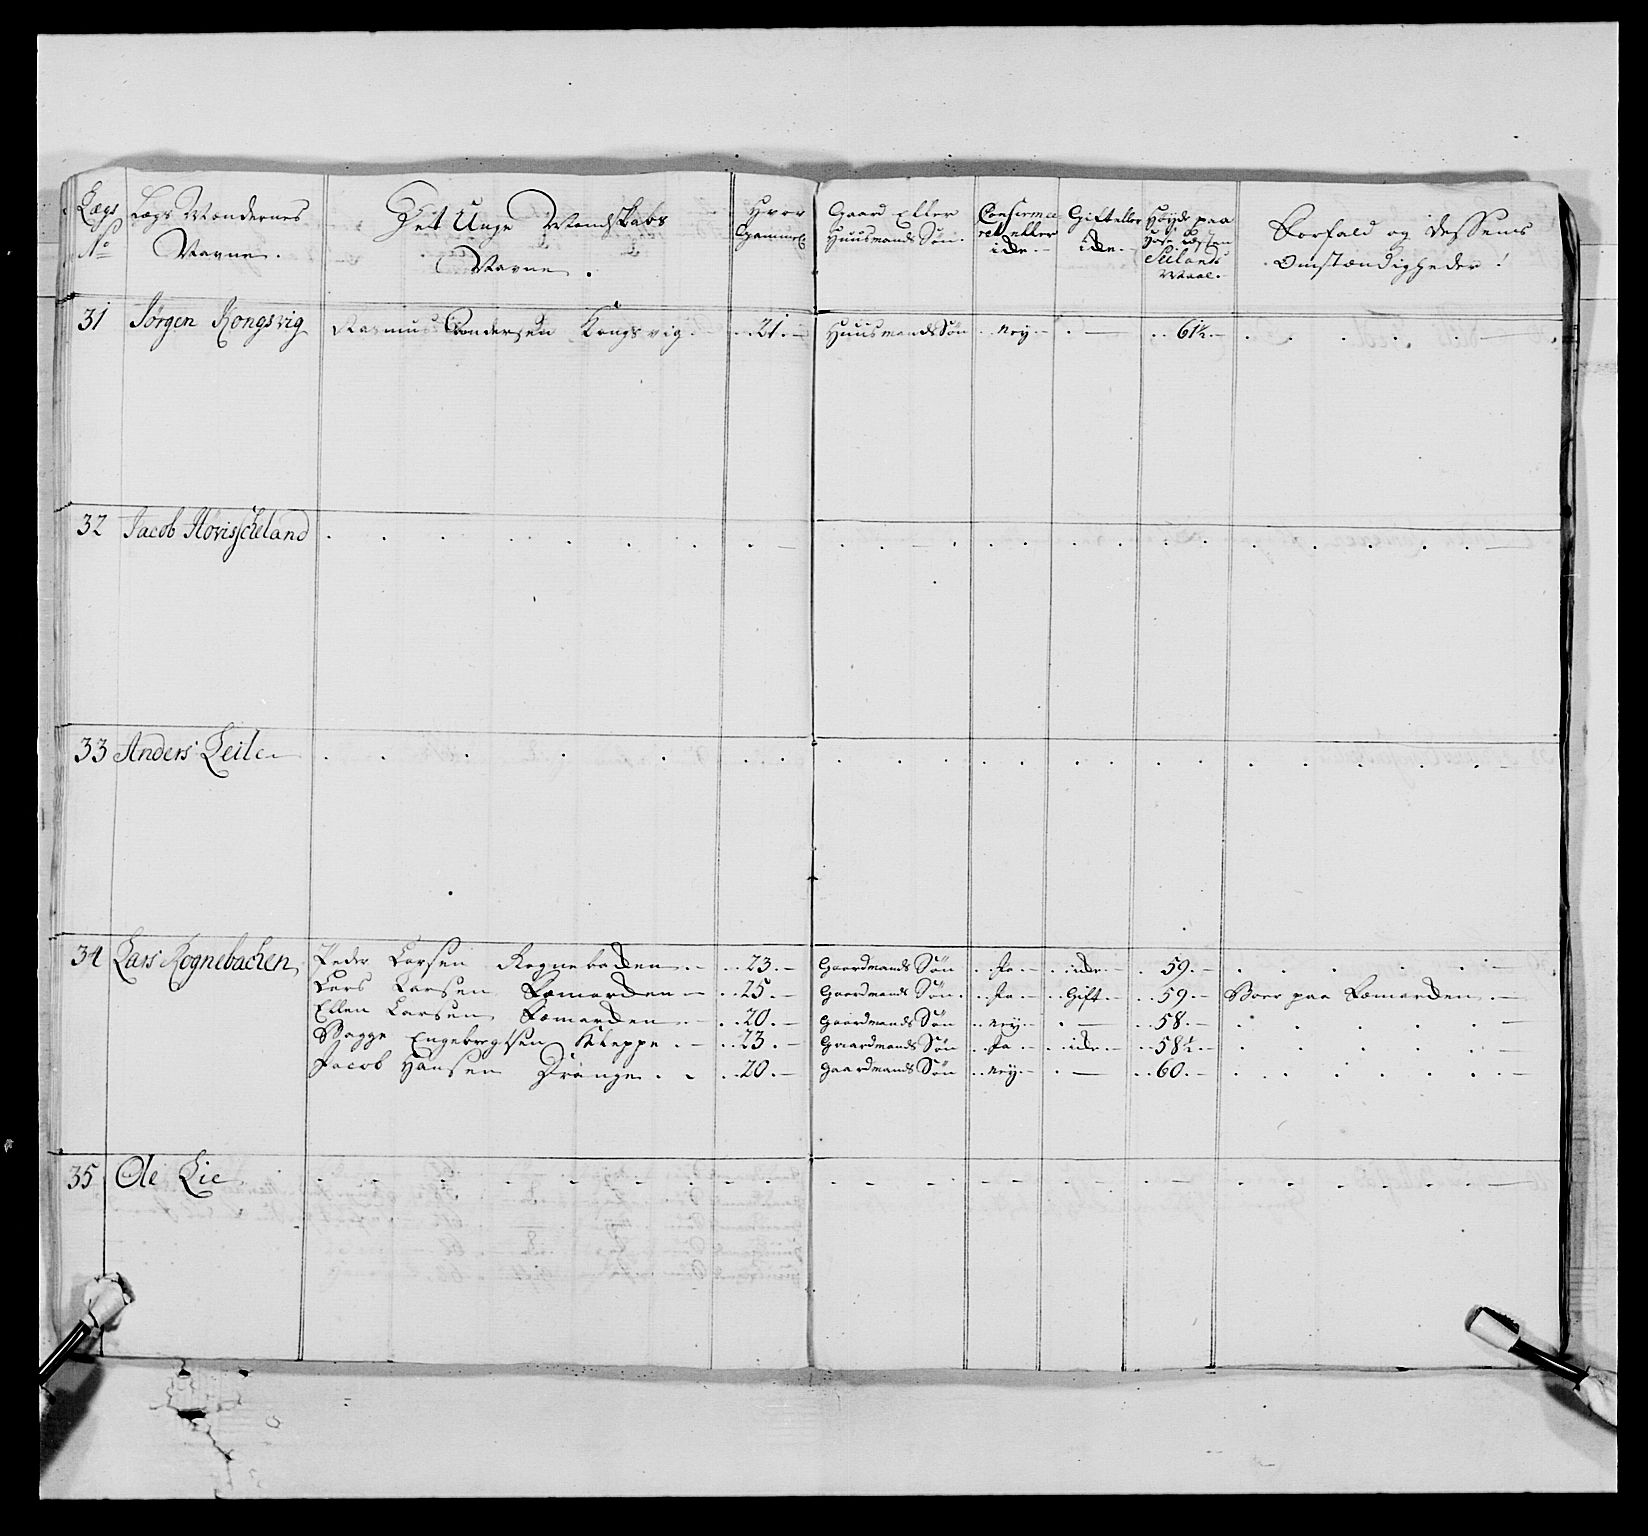 Lægs No | Lægs Mændernes Navne. | Det Unge Mandskabs Navne. | Hvor Gammel | Gaard Eller Huusmands Søn. | Confirmeret eller icke | Gift eller icke. | Høyde paa Sælands Maal. | Forfald og dessens Omstændigheder!
31 Jørgen Kongsvig | Rasmus Andersen Kongsvig. | 21. | Huusmands Søn | ney | – | 61½.
32 Jacob
33 Anders Leile
34 Lars Rognebachen | Peder Larsen Rognebacken | 23. | Gaardmands Søn | Ja | icke | 59.
Lars Larsen Ræmarcken | 25. | Gaardmands Søn. | Ja | Gift | 59 | Boer paa Ræmarcken.
Ellen Larsen Ræmarcken | 20. | Gaardmands Søn | ney | – | 58.
Bagge Engebregtsen Kleppe. | 23. | Gaardmands Søn | Ja | icke | 58½
Jacob Hansen Drange. | 20. | Gaardmands Søn | ney | – | 60.
35 Ole Lie